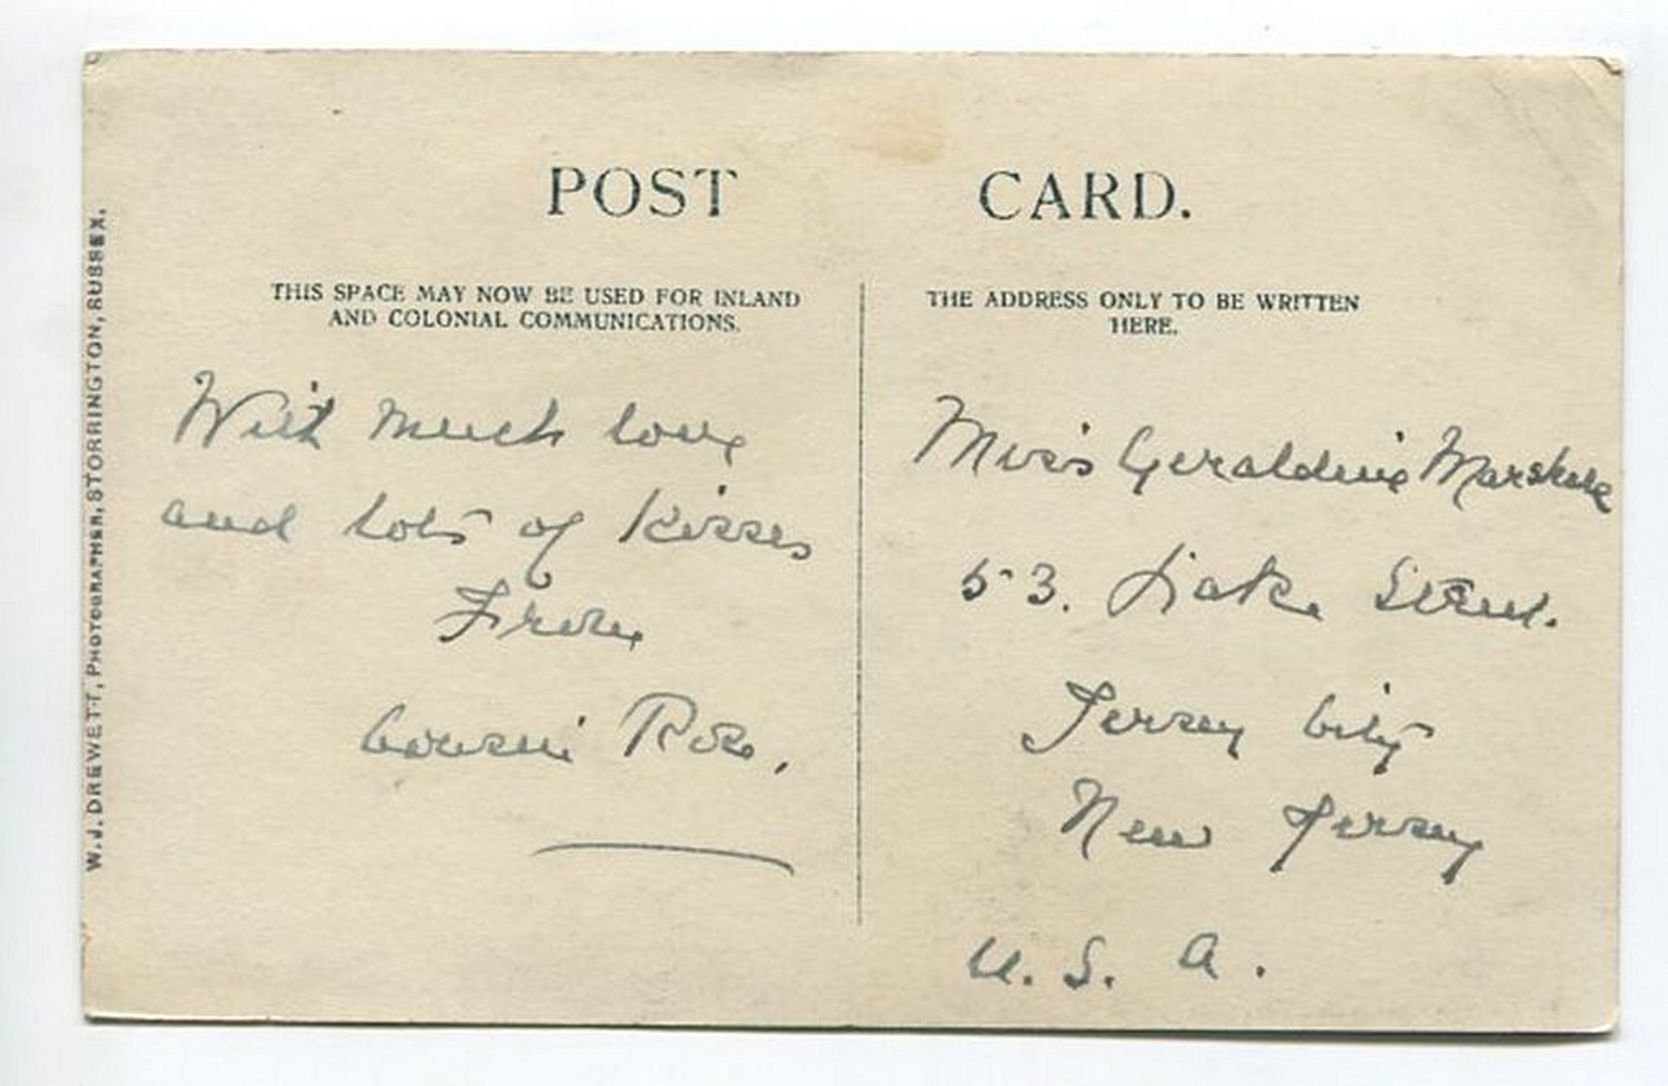 POST CARD.
THIS SPACE MAY NOW BE USED FOR INLAND
AND COLONIAL COMMUNICATIONS.
THE ADDRESS ONLY TO BE WRITTEN
HERE.
With much love
and lots of kisses
From
Cousin Rose,
Miss Geraldine
53. Lake Street.
Jersey City
New Jersey
U. S. A.
W. J. DREWETT, PHOTOGRAPHER, STORRINGTON, SUSSEX.